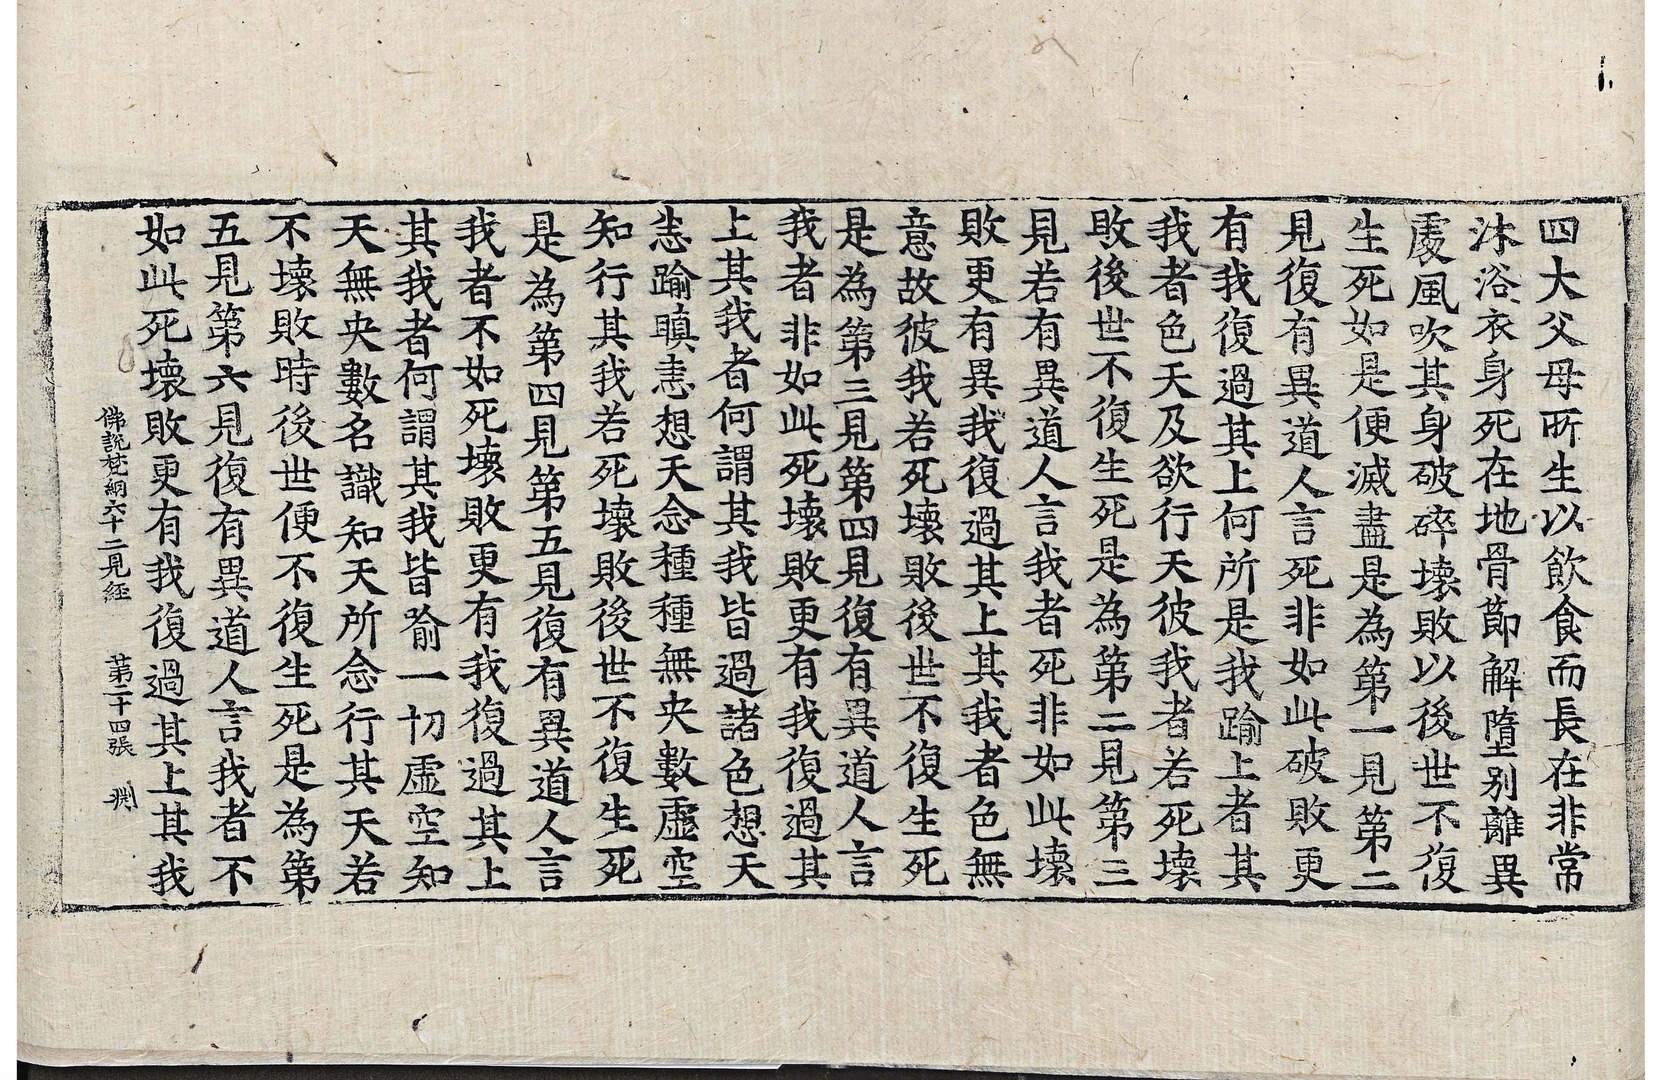 四大父母所生以飮食而長在非常
沐浴衣身死在地骨節解墮別離異
處風吹其身破碎壞敗以後世不復
生死如是便滅盡是為第一見第二
見復有異道人言死非如此破敗更
有我復過其上何所是我踰上者其
我者色天及欲行天彼我者若死壞
敗後世不復生死是為第二見第三
見若有異道人言我者死非如此壞
敗更有異我復過其上其我者色無
意故彼我若死壞敗後世不復生死
是為第三見第四見復有異道人言
我者非如此死壞敗更有我復過其
上其我者何謂其我皆過諸色想天
恚踰瞋恚想天念種種無央數虛空
知行其我若死壞敗後世不復生死
是為第四見第五見復有異道人言
我者不如死壞敗更有我復過其上
其我者何謂其我皆踰一切虛空知
天無央數名識知天所念行其天若
不壞敗時後世便不復生死是為第
五見第六見復有異道人言我者不
如此死壞敗更有我復過其上其我
佛說梵網六十二見經 第二十四張